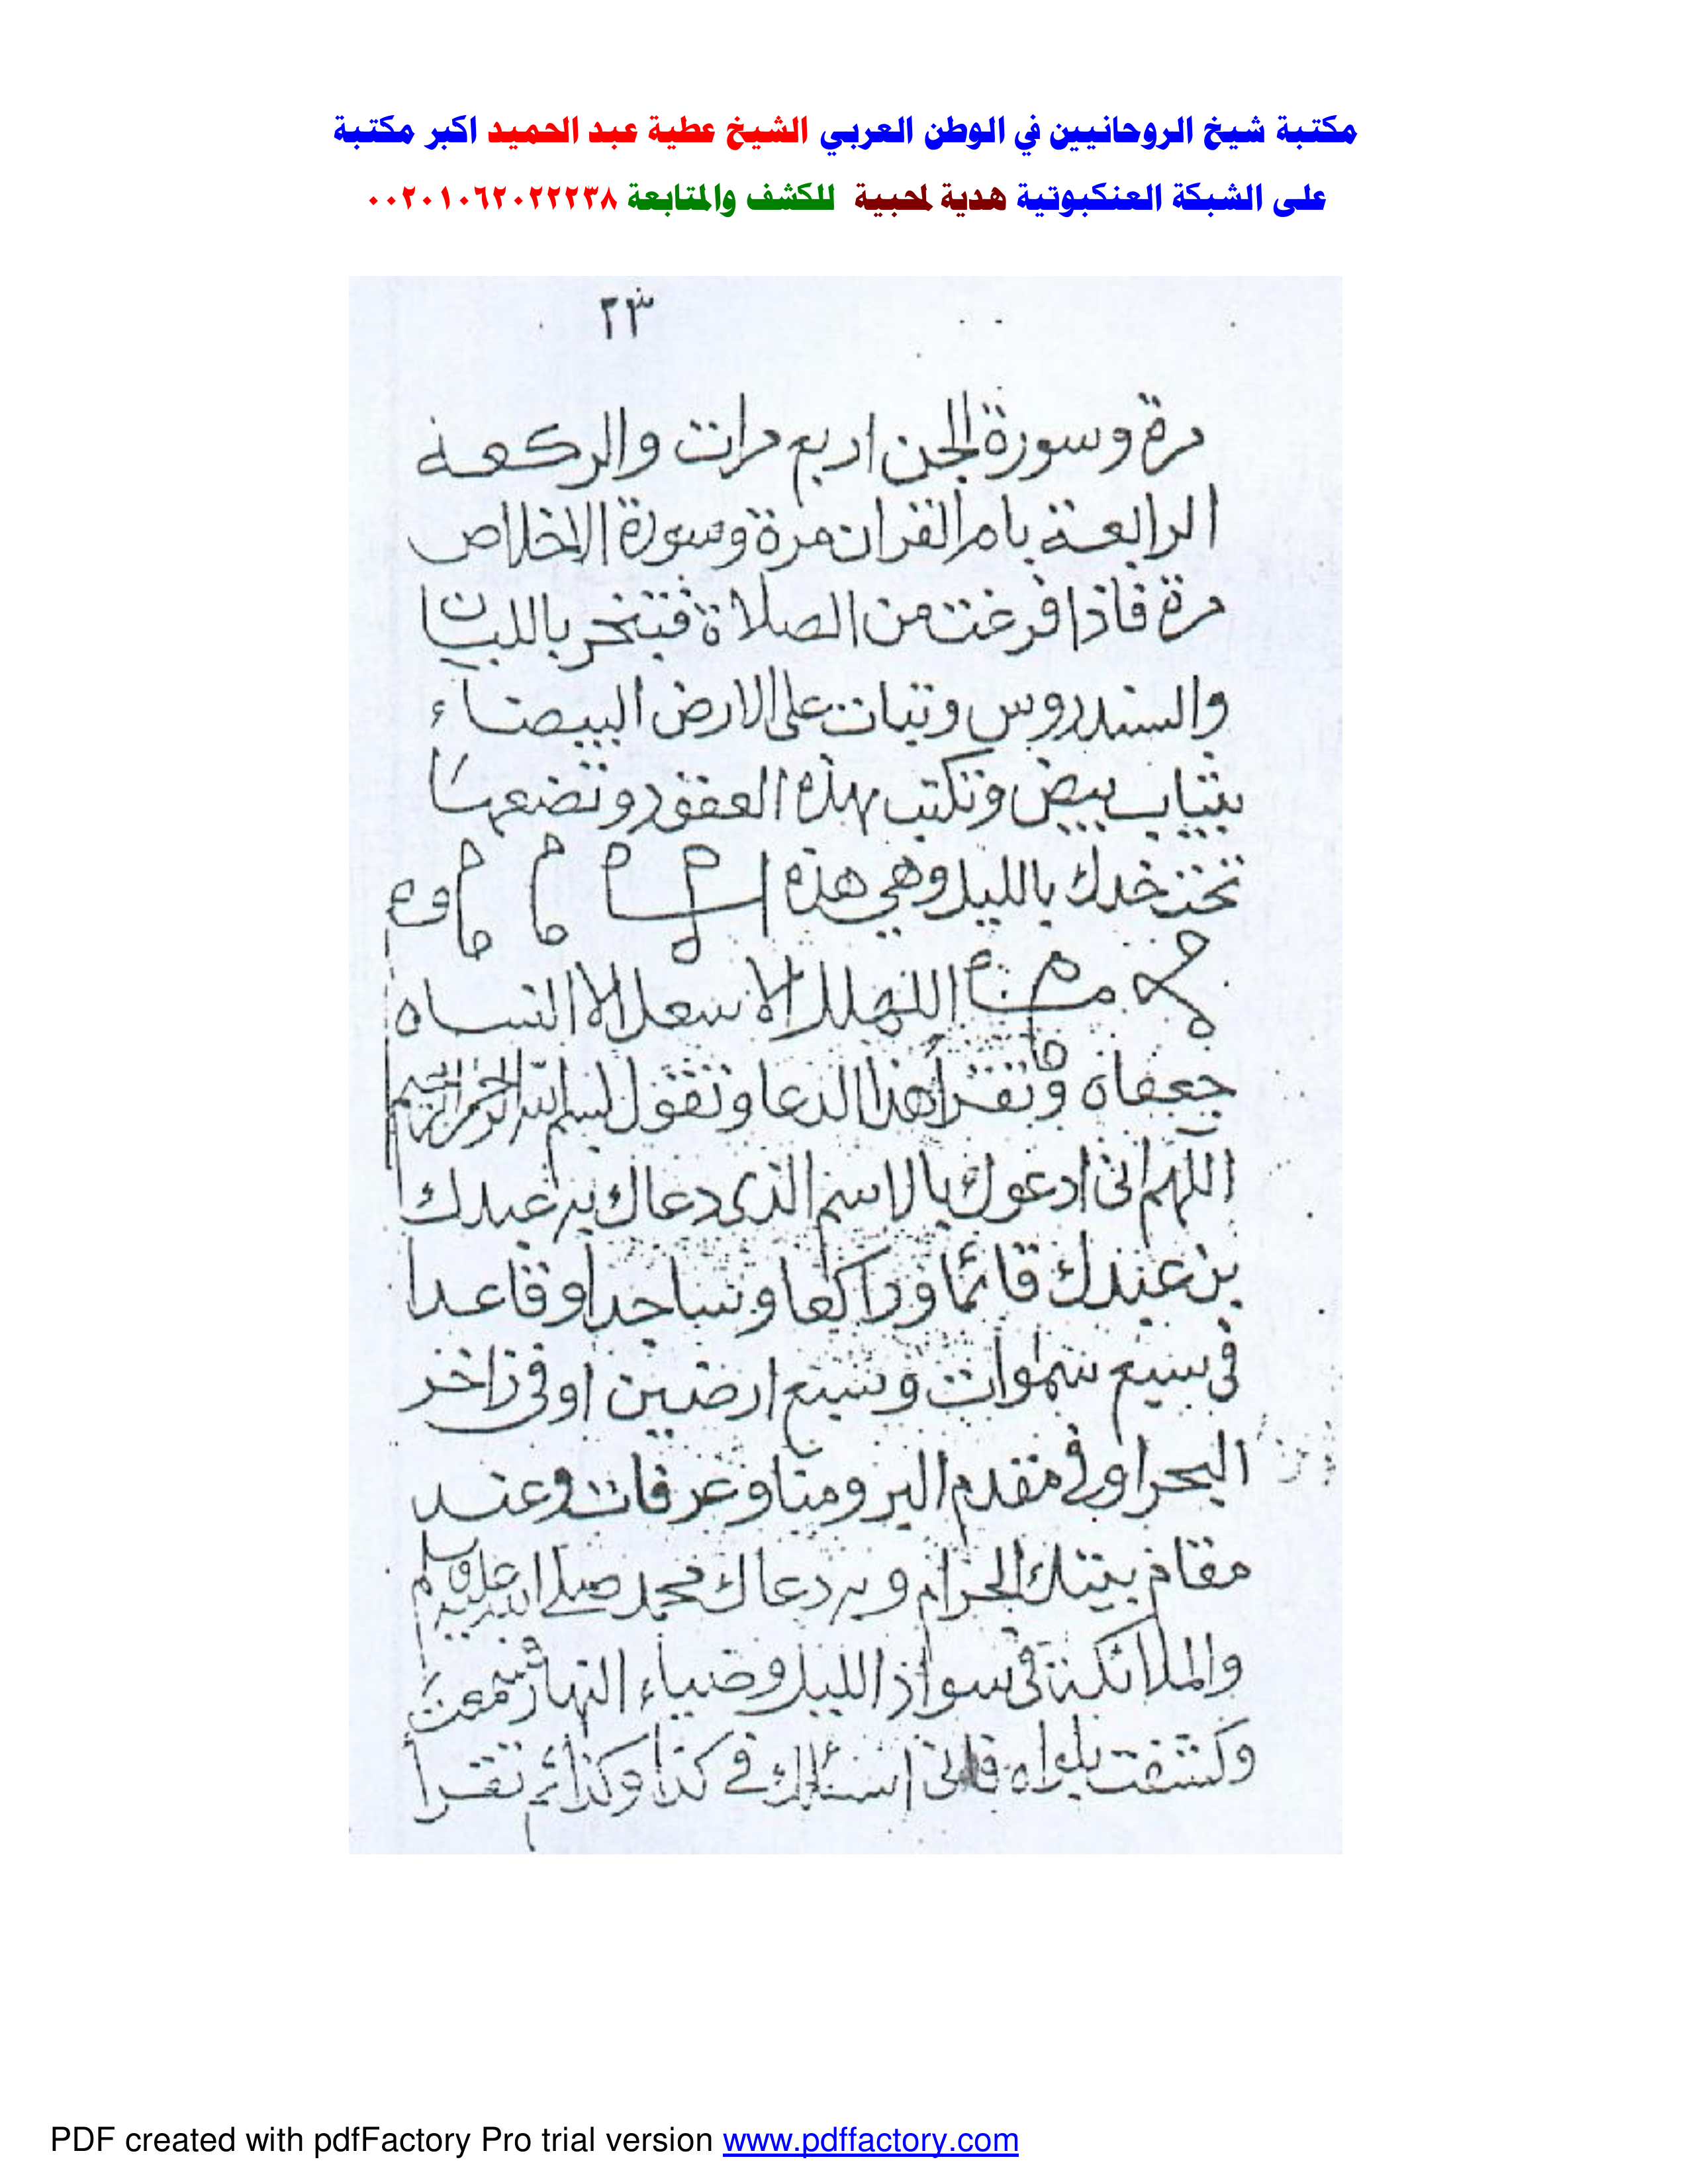 مكتبة شيخ الروحانيين في الوطن العربي الشيخ عطية عبد الحميد اكبر مكتبة
على الشبكة العنكبوتية هدية لمحبية للكشف والمتابعة ٠٠٢٠١٠٦٢٠٢٢٢٣٨
٢٣
مرة وسورة الجن اربع مرات والركعة
الرابعة بام القران مرة وسورة الاخلاص
مرة فاذا فرغت من الصلاة فتبخر باللبان
والسندروس وتبات على الارض البيضاء
بثياب بيض وتكتب بهذه العقود وتضعها
تحت خدك بالليل وهي هذه
وتقرأ هذا الدعا وتقول بسم الله الرحمن الرحيم
اللهم انى ادعوك بالاسم الذى دعاك به عبدك
بن عبدك قائما وراكعا وساجدا وقاعدا
فى سبع سموات وسبع ارضين او فى زاخر
البحر او فى مقدم البر ومنا وعرفات وعند
مقام بيتك الحرام وبه دعاك محمد صلى الله عليه وسلم
والملائكة فى سواد الليل وضياء النهار فسمعت
وكشفت بلواه فانى اسئلك فى كذا وكذا ثم تقرأ
PDF created with pdfFactory Pro trial version www.pdffactory.com